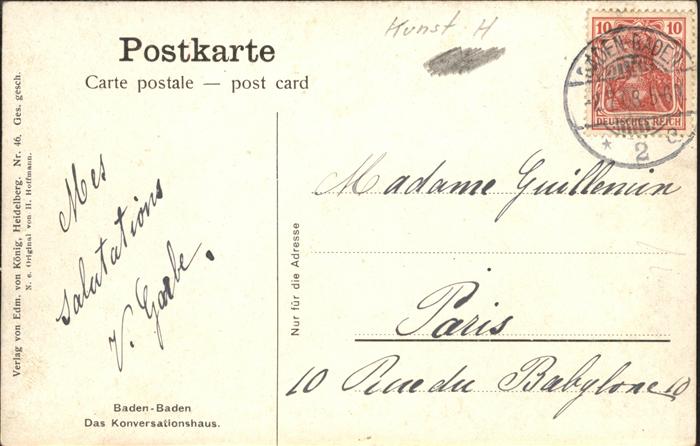 Kunst H
Postkarte
Carte postale — post card
10 10
BADEN-BADEN
DEUTSCHES REICH
* 2 c.
Mes
salutations
V. Garbe.
Verlag von Edm. von König, Heidelberg. Nr. 46. Ges. gesch.
N. e. Original von H. Hoffmann.
Nur für die Adresse
Madame Guillemin
Paris
10 Rue du Babylone 10
Baden-Baden
Das Konversationshaus.